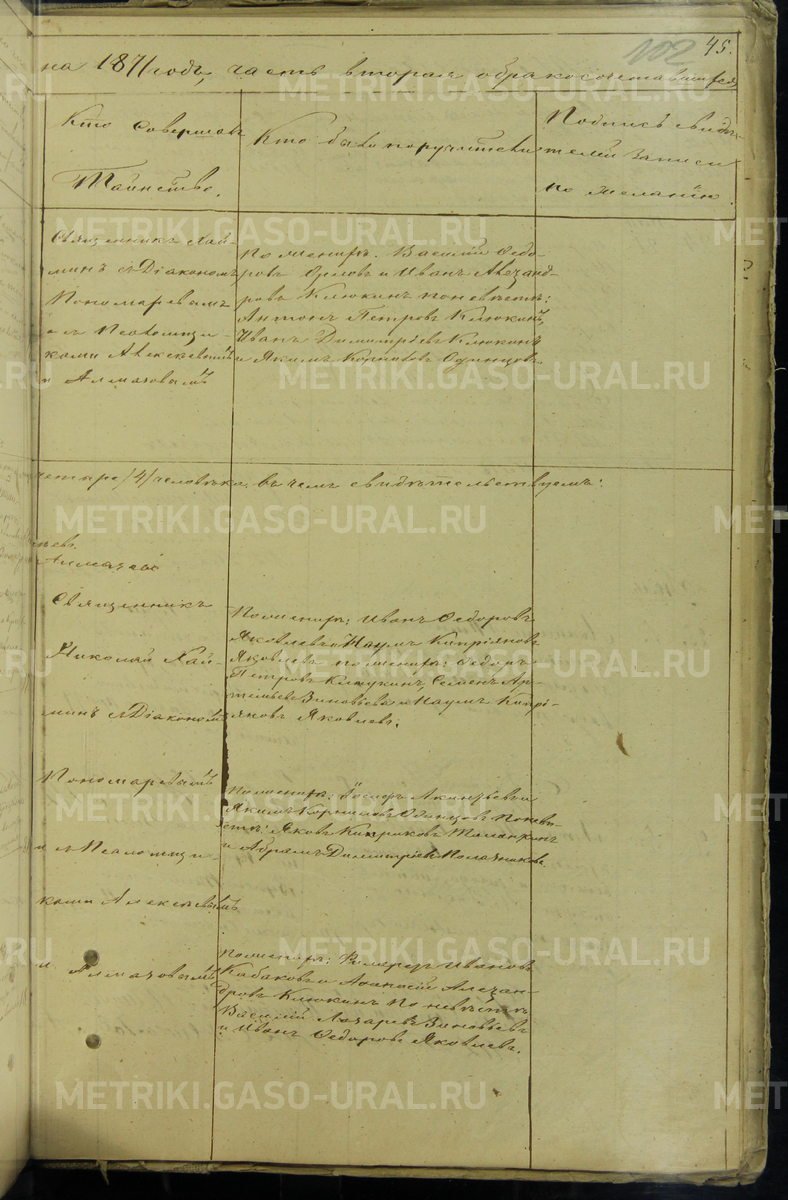 102 45.
на 1871 годъ, часть вторая о бракосочетавшихся
Кто совершалъ
Таинство.
Кто были поручители
Подпись свидѣ-
телей записи
по желанію.
Священникъ Хай-
минъ съ Діакономъ
Пономаревымъ
и съ Псаломщи-
ками Алексѣевымъ
и Алмазовымъ
По женихѣ: Василій Ѳедо-
ровъ Орловъ и Иванъ Александ-
ровъ Клюкинъ по невѣстѣ:
Антонъ Петровъ Клюкинъ,
Иванъ Димитріевъ Клюкинъ
и Якимъ Корниловъ Одинцовъ.
четыре /4/ человѣка, въ чемъ свидѣтельствуемъ:
Алмазовъ
Священникъ
Николай Хай-
минъ съ Діакономъ
Пономаревымъ
и съ Псаломщи-
ками Алексѣевымъ
и Алмазовымъ
По женихѣ: Иванъ Ѳедоровъ
Яковлевъ и Наумъ Кипріяновъ
Яковлевъ по женихѣ: Ѳедоръ
Петровъ Клюкинъ, Семенъ Ар-
темьевъ Зиновьевъ и Наумъ Кипрі-
яновъ Яковлевъ.
По женихѣ:
Якимъ Корниловъ Одинцовъ По невѣ-
стѣ: Яковъ
и Абрамъ Димитріевъ
По женихѣ: Ивановъ
Кабаковъ и Аѳанасій Алексан-
дровъ Клюкинъ По невѣстѣ
Василій Лазаревъ Зиновьевъ
и Иванъ Ѳедоровъ Яковлевъ.
METRIKI.GASO-URAL.RU